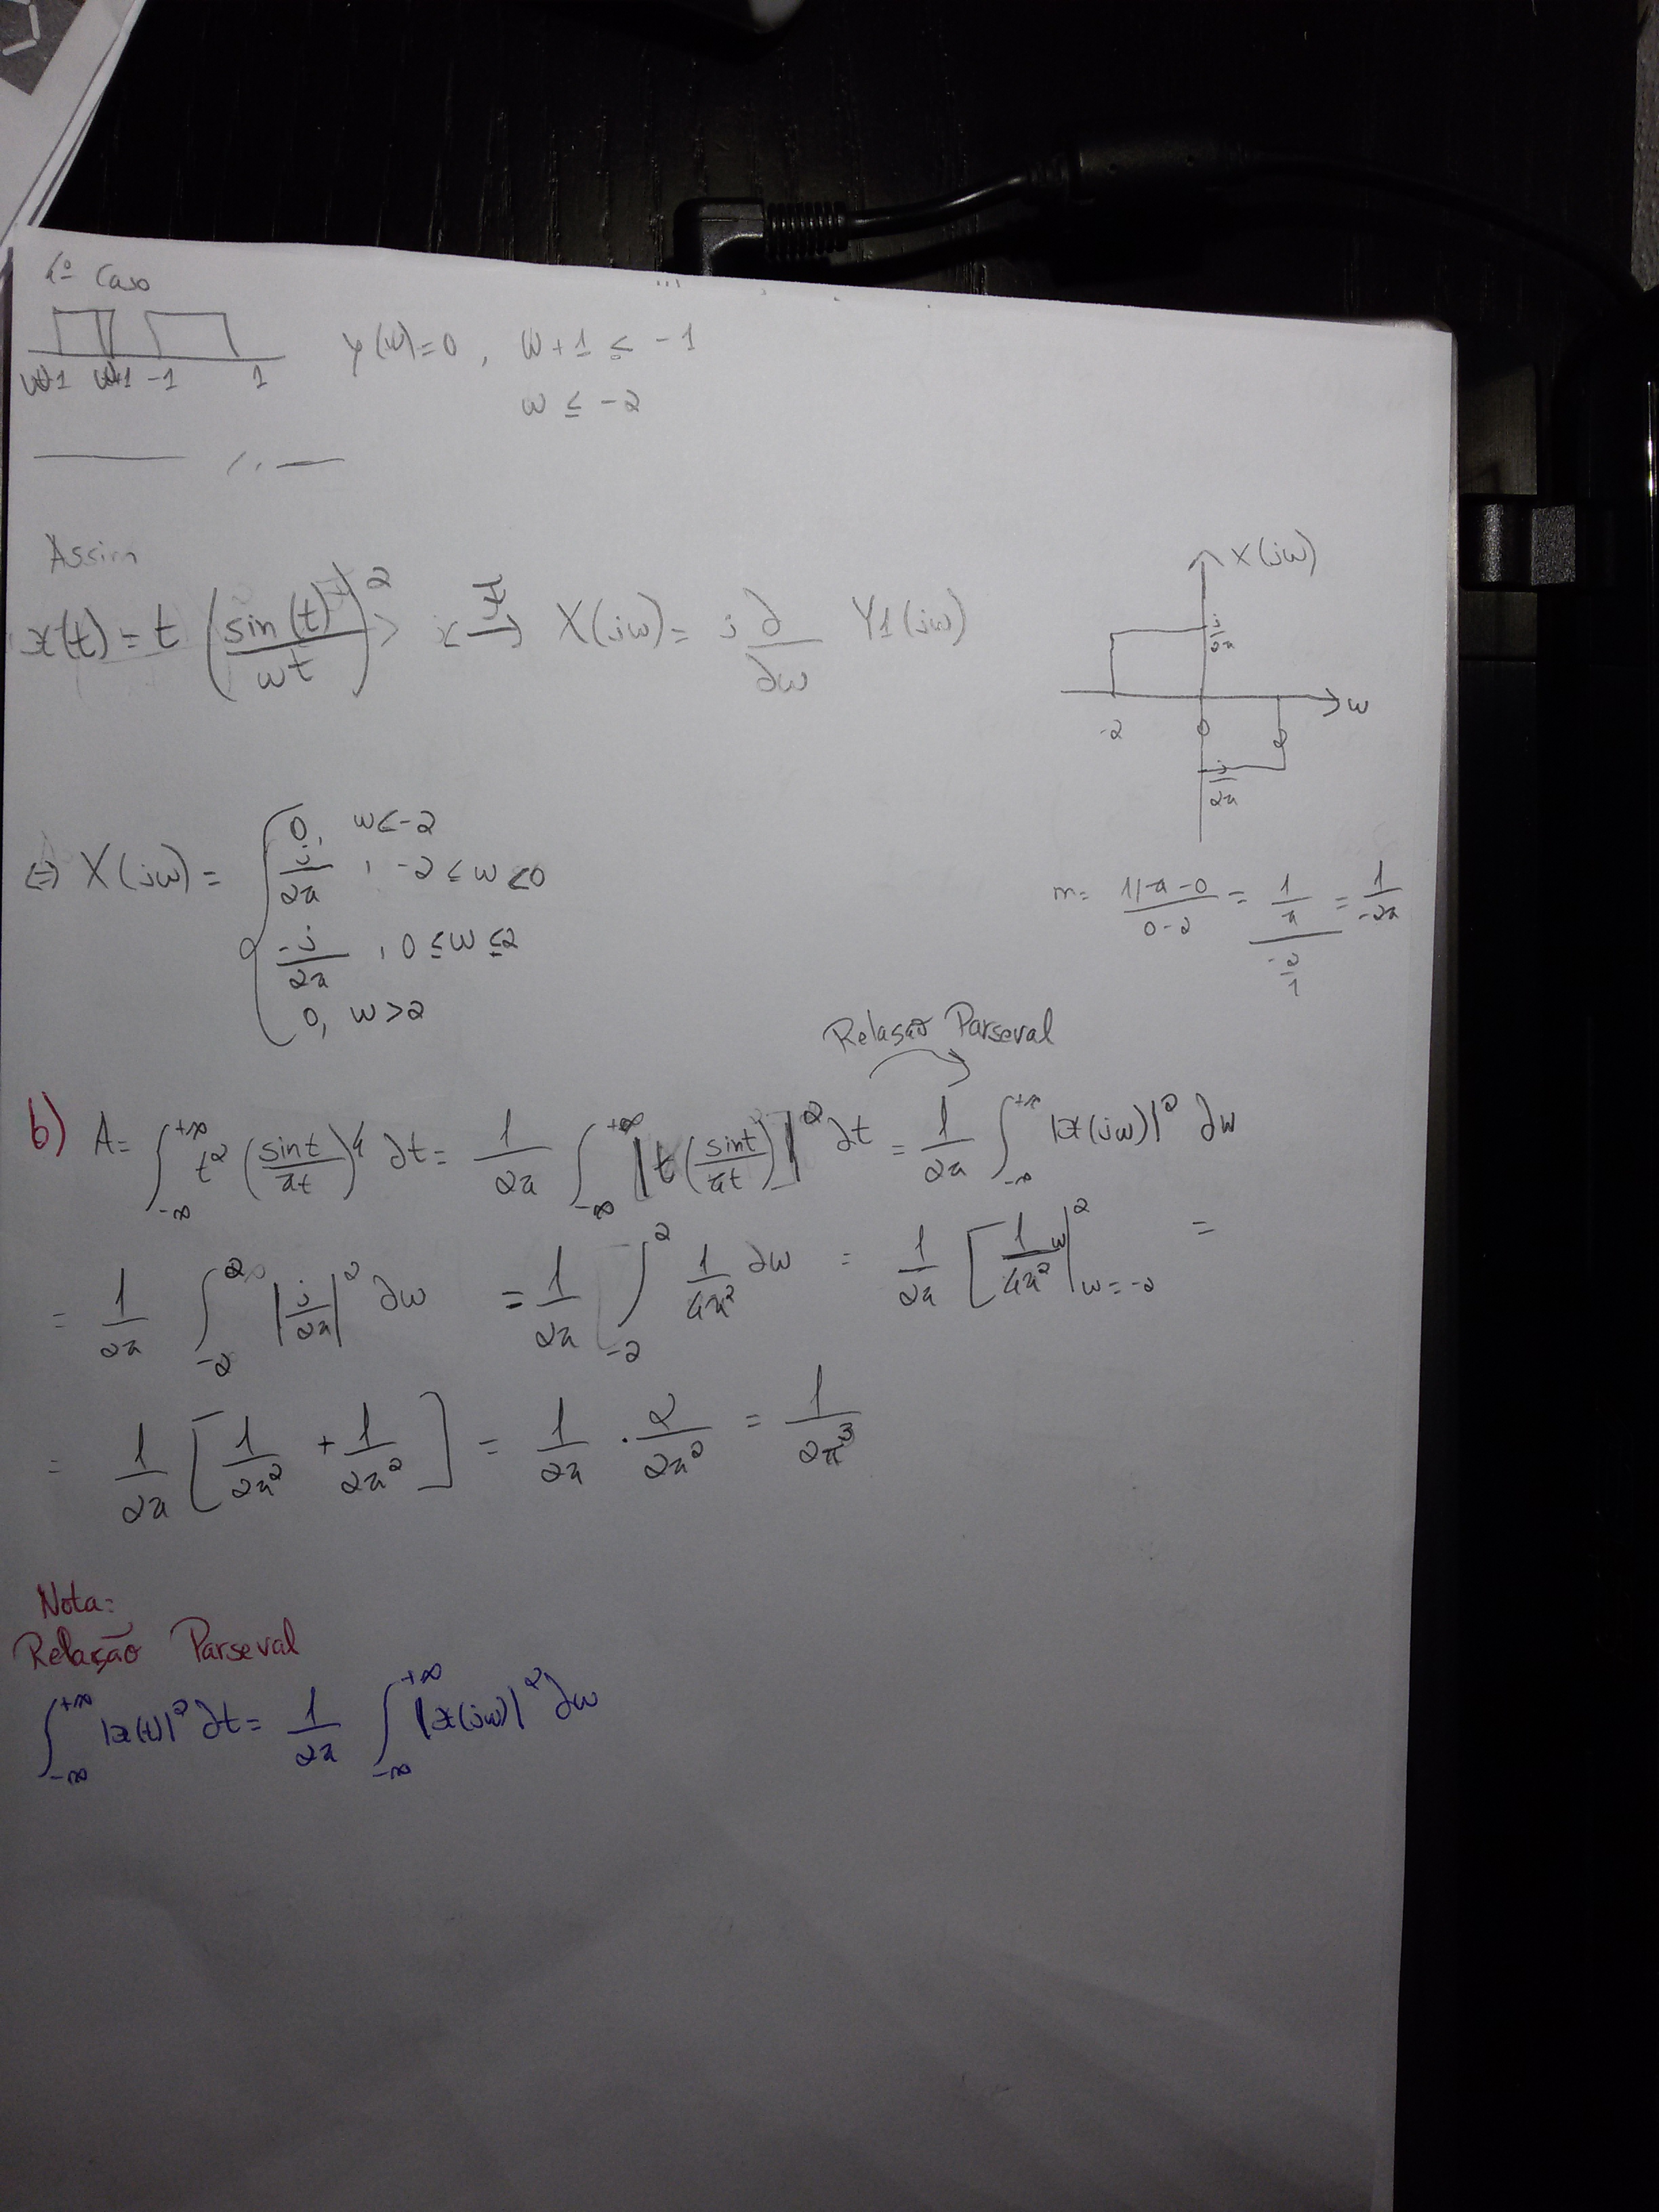 1º Caso
W-1 W+1 -1 1
Y(W)=0, W+1 ≤ -1
W ≤ -2
Assim
x(t) = t (sin(t)/wt)² <-F-> X(jw) = j ∂/∂w Y1(jw)
X(jw)
j/2π
-2 0 2 w
-j/2π
<=> X(jw) = { 0, w<-2
j/2π, -2 ≤ w < 0
-j/2π, 0 ≤ w ≤ 2
0, w>2
m = (1/π - 0)/(0-2) = (1/π)/(-2/1) = 1/-2π
Relasão Parseval
b) A = ∫_{-∞}^{+∞} t² (sint/πt)⁴ ∂t = 1/2π ∫_{-∞}^{+∞} |t (sint/πt)|² ∂t = 1/2π ∫_{-∞}^{+∞} |x(jw)|² ∂w
= 1/2π ∫_{-2}^{2} |j/2π|² ∂w = 1/2π ∫_{-2}^{2} 1/4π² ∂w = 1/2π [1/4π² w|_{w=-2}^{2} =
= 1/2π [1/2π² + 1/2π²] = 1/2π · 2/2π² = 1/2π³
Nota:
Relação Parseval
∫_{-∞}^{+∞} |x(t)|² ∂t = 1/2π ∫_{-∞}^{+∞} |x(jw)|² ∂w